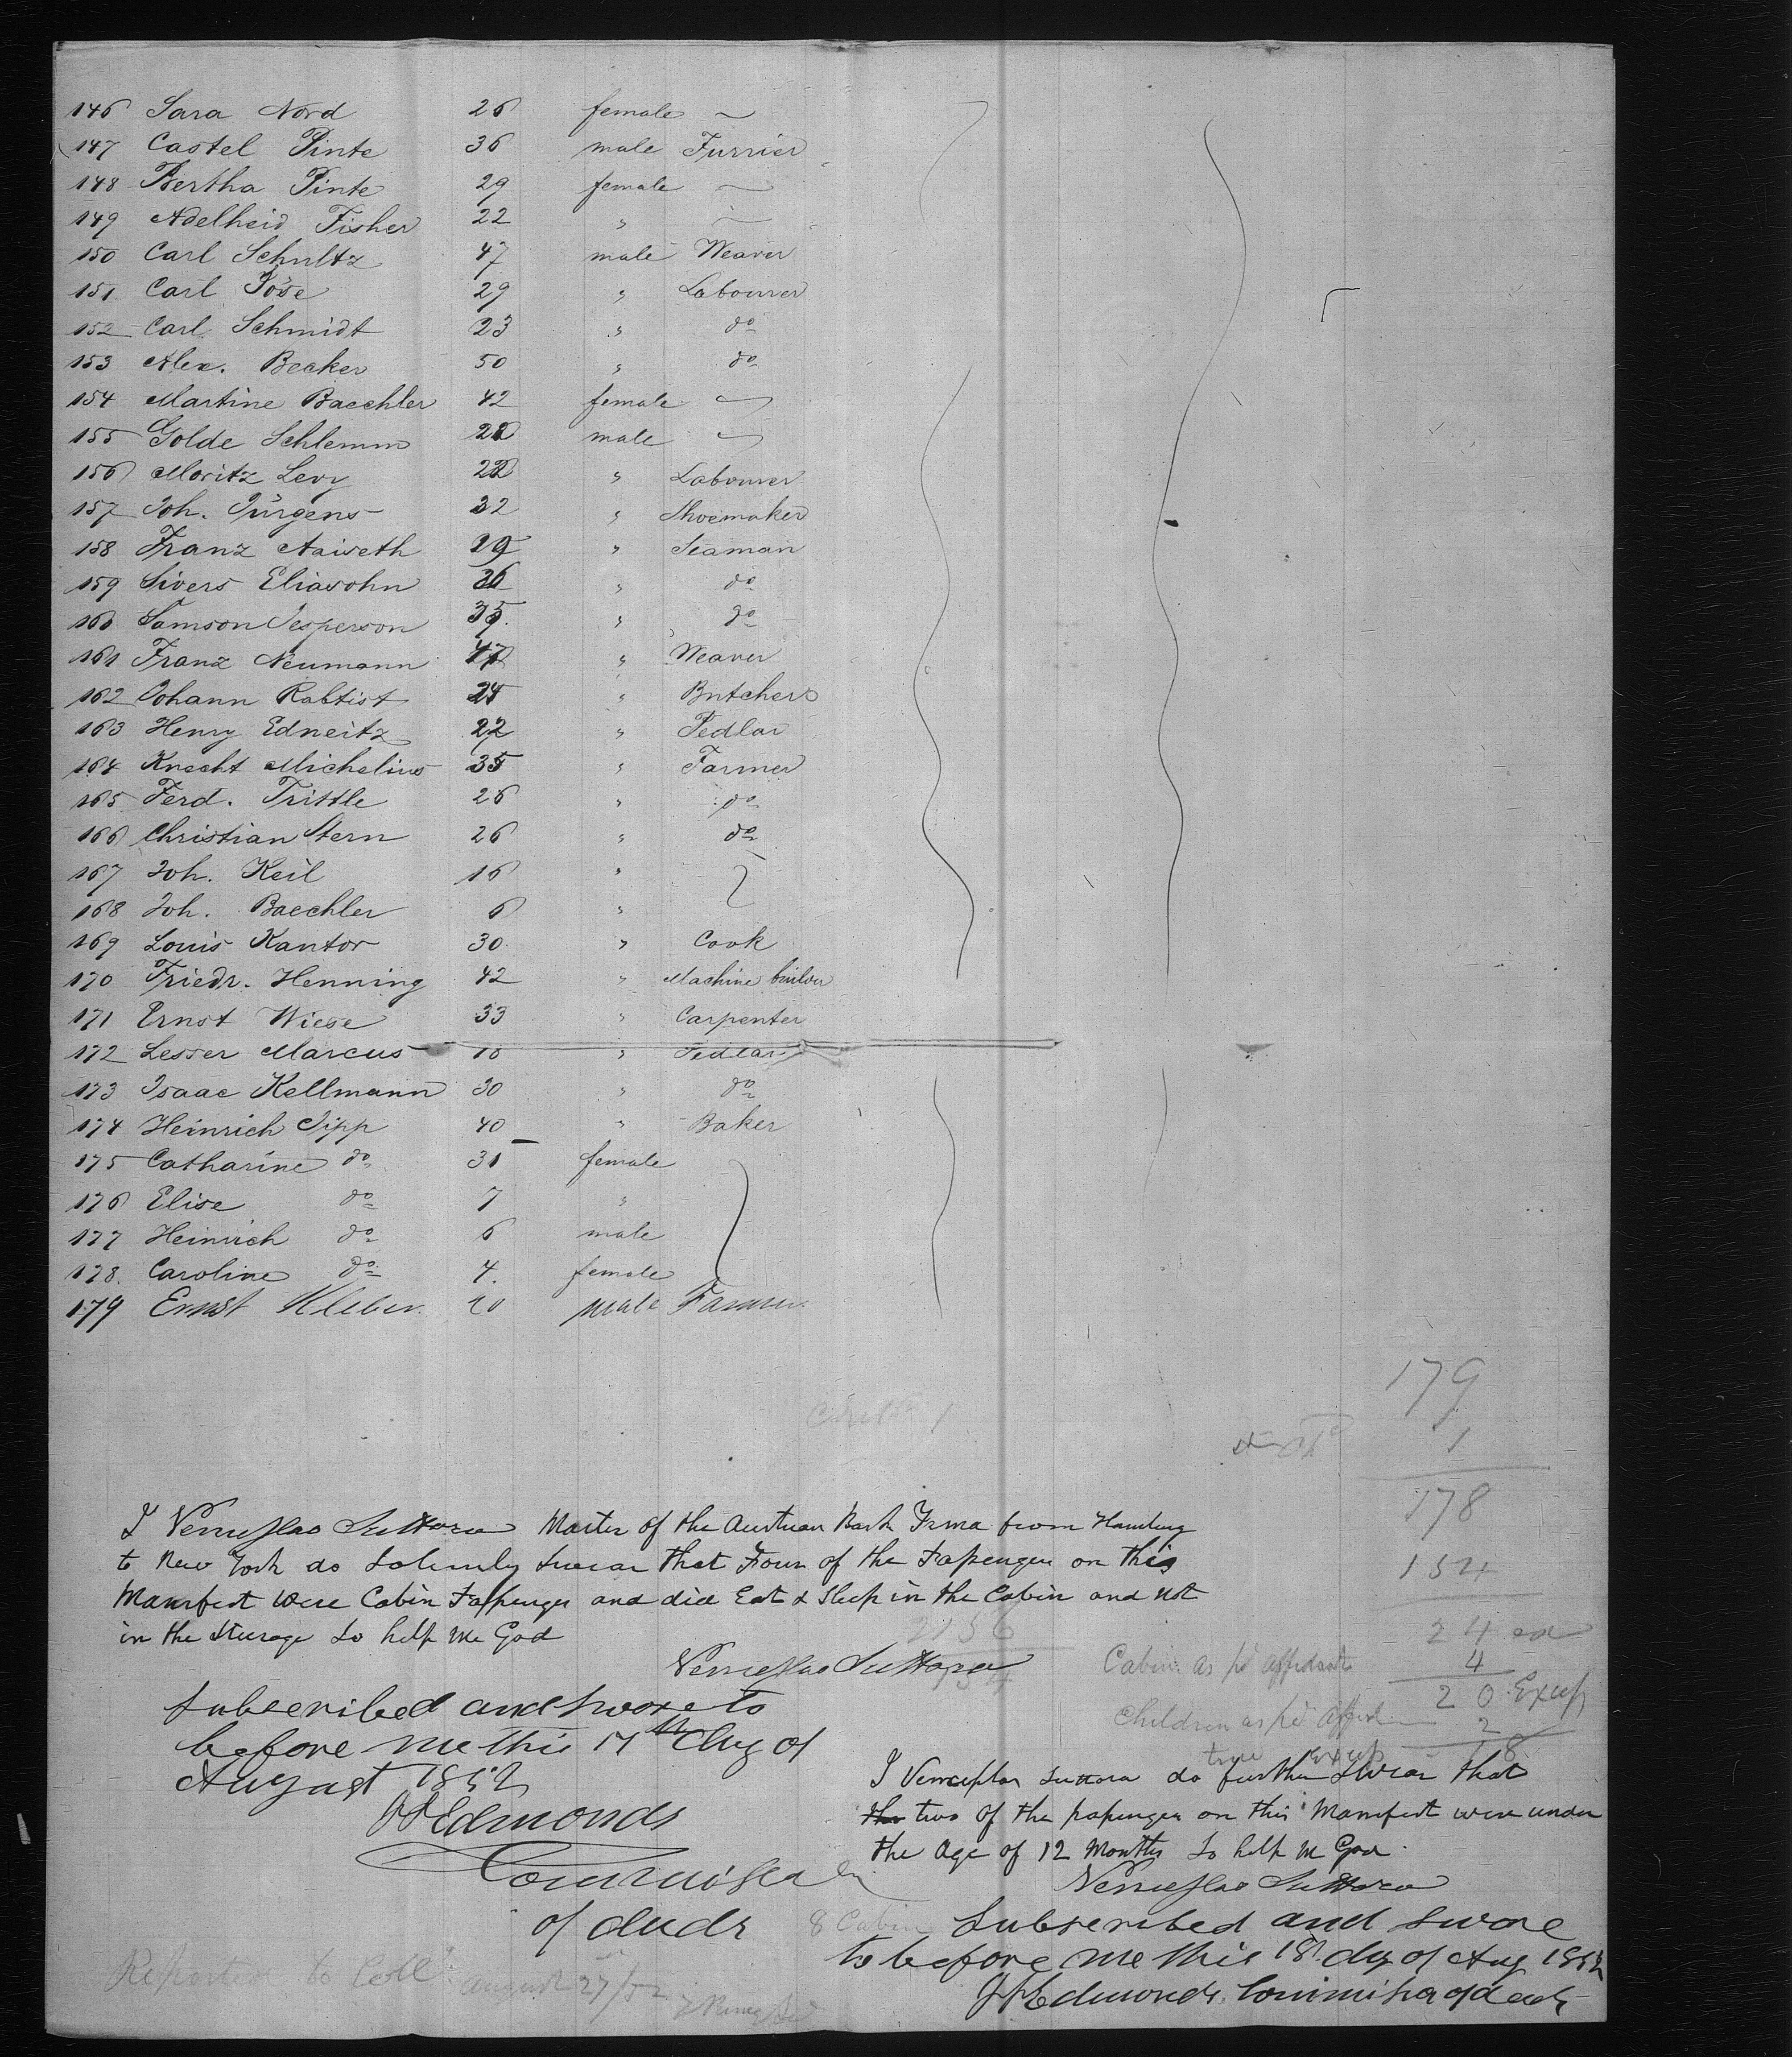 146 Sara Nord 26 female ~
147 Castel Pinte 36 male Furrier
148 Bertha Pinte 29 female ~
149 Adelheid Fisher 22 " ~
150 Carl Schultz 47 male Weaver
151 Carl Töse 29 " Labourer
152 Carl Schmidt 23 " do
153 Alex. Beaker 50 " do
154 Martine Baechler 42 female ~
155 Golde Schlemm male ~
156 Moritz Levy 22 " Labourer
157 Joh. Jürgens 32 " Shoemaker
158 Franz Aaiseth 29 " Seaman
159 Sivers Eliasohn 36 " do
160 Samson Jesperson 35. " do
161 Franz Neumann 47 " Weaver
162 Johann Rabtist 24 " Butcher
163 Henry Edneitz 22 " Pedlar
164 Knecht Michelius 35 " Farmer
165 Ferd. Tristle 26 " do
166 Christian Stern 26 " do
167 Joh. Keil 16 "
168 Joh. Baechler 6 "
169 Louis Kantor 30 " Cook
170 Friedr. Henning 42 " Machine builder
171 Ernst Wiese 33 " Carpenter
172 Lesser Marcus " Pedlar
173 Isaac Kellmann 30 " do
174 Heinrich Sipp 40 " Baker
175 Catharine do 31 female
176 Elise do 7 "
177 Heinrich do 6 male
178. Caroline do 4. female
179 Ernst Kleber. 20 male Farmer
179
1
178
154
24
I Venceslao Suttora Master of the Austrian Bark Irma from Hamburg
to New York do Solemnly Swear that Four of the Passengers on this
Manifest were Cabin Passengers and did Eat & Sleep in the Cabin and not
in the Steerage So help me God
2156
Venceslao Suttora
Cabin as pr affidavit 4
20 Excess
Children as pr Affid 2
18
Subscribed and swore to
before me this 17th day of
August 1852
JS Edmonds
Commissioner
of deeds
I Venceslao Suttora do further Swear that
two of the passengers on this Manifest were under
the Age of 12 Months So help me God.
Venceslao Suttora
8 Cabin
Subscribed and swore
to before me this 18 day of Aug 1852
JS Edmonds, Commissioner of deeds
Reported to Coll August 27/52